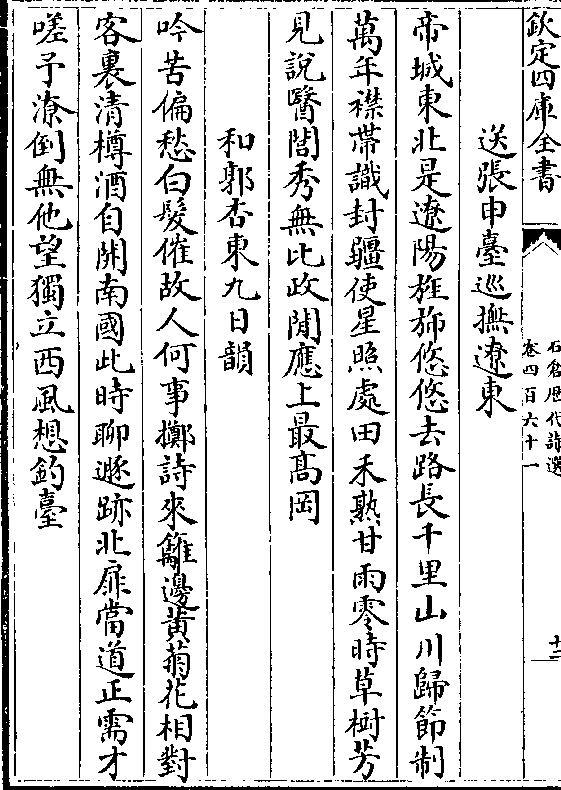 欽定四庫全書
石倉歴代詩選
卷四百六十一
十二
送張申臺巡撫遼東
帝城東北是遼陽旌斾悠悠去路長千里山川歸節制
萬年襟帶識封疆使星照處田禾熟甘雨零時草樹芳
見說醫閭秀無比政閒應上最髙岡
和郭杏東九日韻
吟苦偏愁白髮催故人何事擲詩來籬邊黃菊花相對
客裏清樽酒自開南國此時聊遯跡北扉當道正需才
嗟予潦倒無他望獨立西風想釣臺